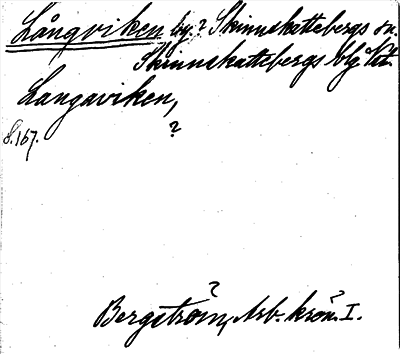 Långviken by? Skinnskattebergs sn.
Skinnskattebergs blg Vstm.
Langaviken,
?
S. 167.
?
Bergström, Arb. krön. I.